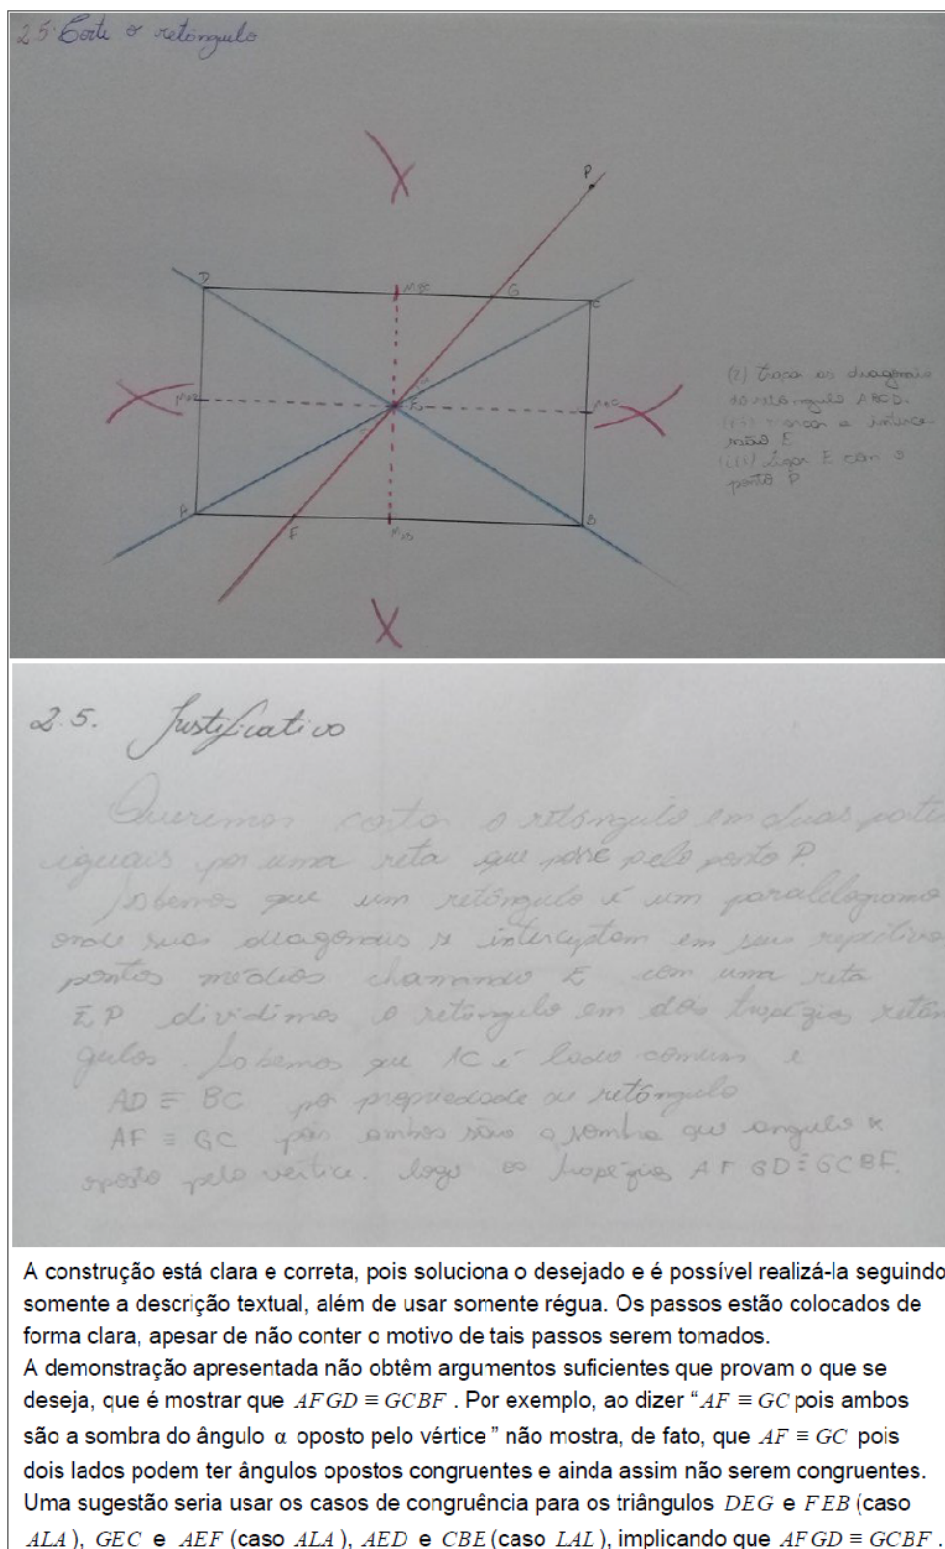 2.5. Corte o retângulo
P
D
G
C
E
A
F
B
(i) traçar as diagonais
do retângulo ABCD.
(ii) marcar a interce
ssão E
(iii) Ligar E com o
ponto P
2.5. Justificativo
Queremos cortar o retângulo em duas parte
iguais por uma reta que passe pelo ponto P.
Sabemos que um retângulo é um paralelogramo
onde suas diagonais se interceptam em seus
pontos médios chamando E com uma reta
EP dividimos o retângulo em dois trapézios retân
gulos. Sabemos que AC é lado comum e
AD ≡ BC por propriedade de retângulo
AF ≡ GC pois ambos são a sombra do angulo α
oposto pelo vértice. logo os trapézios AFGD ≡ GCBF.
A construção está clara e correta, pois soluciona o desejado e é possível realizá-la seguindo
somente a descrição textual, além de usar somente régua. Os passos estão colocados de
forma clara, apesar de não conter o motivo de tais passos serem tomados.
A demonstração apresentada não obtêm argumentos suficientes que provam o que se
deseja, que é mostrar que AFGD ≡ GCBF . Por exemplo, ao dizer “AF ≡ GC pois ambos
são a sombra do ângulo α oposto pelo vértice” não mostra, de fato, que AF ≡ GC pois
dois lados podem ter ângulos opostos congruentes e ainda assim não serem congruentes.
Uma sugestão seria usar os casos de congruência para os triângulos DEG e FEB (caso
ALA), GEC e AEF (caso ALA), AED e CBE (caso LAL), implicando que AFGD ≡ GCBF .